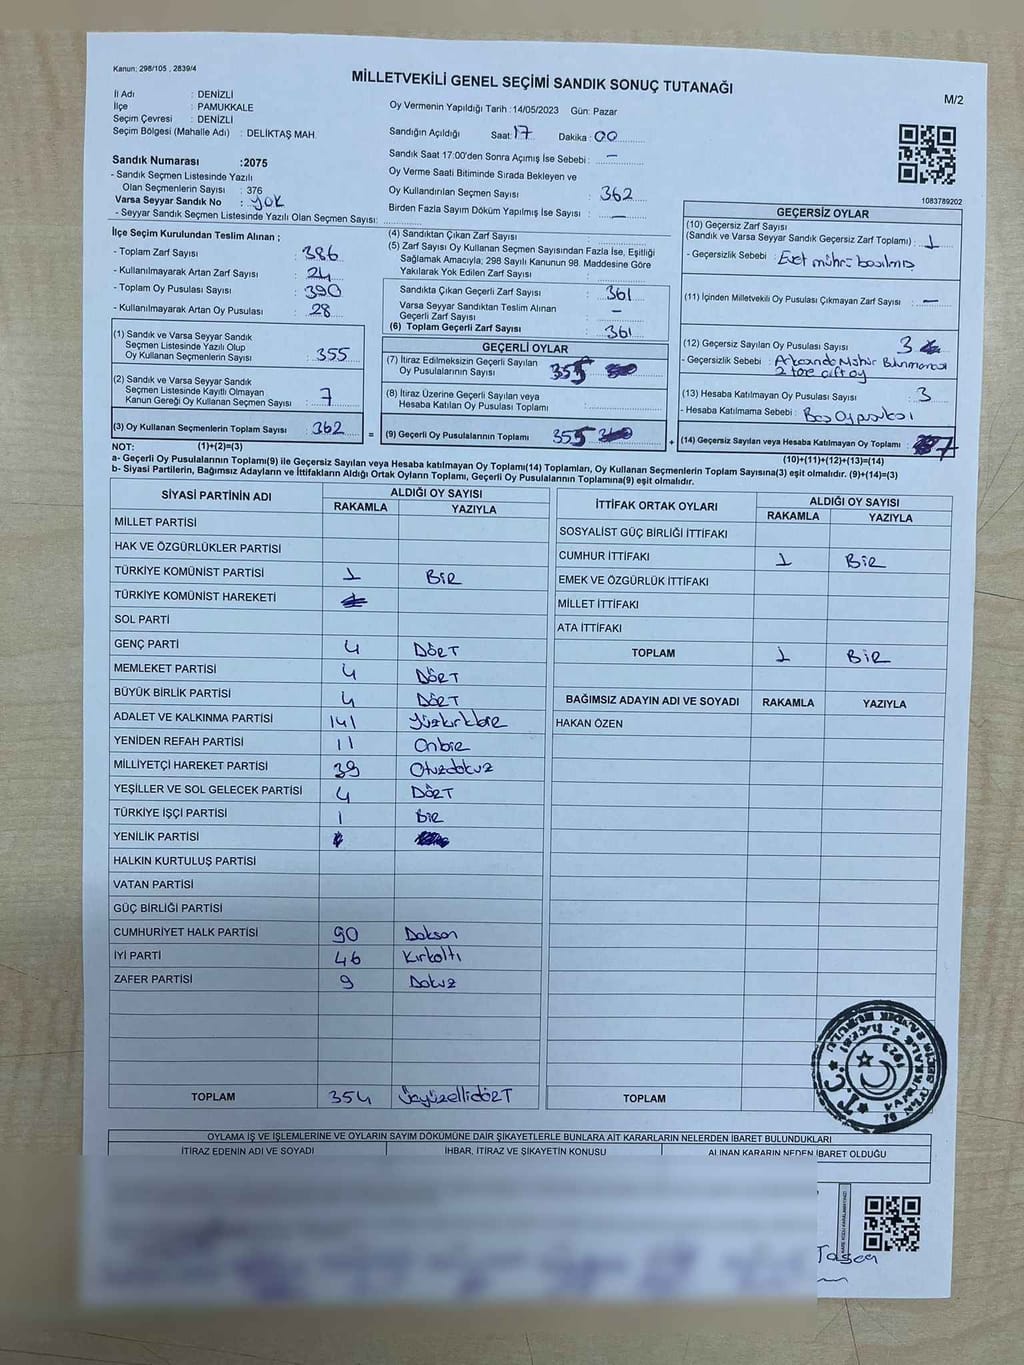 Kanun: 298/105 , 2839/4
MİLLETVEKİLİ GENEL SEÇİMİ SANDIK SONUÇ TUTANAĞI
M/2
İl Adı : DENİZLİ
İlçe : PAMUKKALE
Seçim Çevresi : DENİZLİ
Seçim Bölgesi (Mahalle Adı) : DELİKTAŞ MAH.
Sandık Numarası :2075
- Sandık Seçmen Listesinde Yazılı
Olan Seçmenlerin Sayısı : 376
Varsa Seyyar Sandık No : YOK
- Seyyar Sandık Seçmen Listesinde Yazılı Olan Seçmen Sayısı:
Oy Vermenin Yapıldığı Tarih :14/05/2023 Gün: Pazar
Sandığın Açıldığı Saat: 17 Dakika : 00
Sandık Saat 17:00'den Sonra Açımış İse Sebebi : —
Oy Verme Saati Bitiminde Sırada Bekleyen ve
Oy Kullandırılan Seçmen Sayısı : 362
Birden Fazla Sayım Döküm Yapılmış İse Sayısı : —
1083789202
İlçe Seçim Kurulundan Teslim Alınan ;
- Toplam Zarf Sayısı : 386
- Kullanılmayarak Artan Zarf Sayısı : 24
- Toplam Oy Pusulası Sayısı : 390
- Kullanılmayarak Artan Oy Pusulası : 28
(1) Sandık ve Varsa Seyyar Sandık
Seçmen Listesinde Yazılı Olup
Oy Kullanan Seçmenlerin Sayısı : 355
(2) Sandık ve Varsa Seyyar Sandık
Seçmen Listesinde Kayıtlı Olmayan
Kanun Gereği Oy Kullanan Seçmen Sayısı : 7
(3) Oy Kullanan Seçmenlerin Toplam Sayısı : 362
(4) Sandıktan Çıkan Zarf Sayısı :
(5) Zarf Sayısı Oy Kullanan Seçmen Sayısından Fazla İse, Eşitliği
Sağlamak Amacıyla; 298 Sayılı Kanunun 98. Maddesine Göre
Yakılarak Yok Edilen Zarf Sayısı :
Sandıkta Çıkan Geçerli Zarf Sayısı : 361
Varsa Seyyar Sandıktan Teslim Alınan
Geçerli Zarf Sayısı : —
(6) Toplam Geçerli Zarf Sayısı : 361
GEÇERLİ OYLAR
(7) İtiraz Edilmeksizin Geçerli Sayılan
Oy Pusulalarının Sayısı : 355
(8) İtiraz Üzerine Geçerli Sayılan veya
Hesaba Katılan Oy Pusulası Toplamı :
= (9) Geçerli Oy Pusulalarının Toplamı 355 +
GEÇERSİZ OYLAR
(10) Geçersiz Zarf Sayısı
(Sandık ve Varsa Seyyar Sandık Geçersiz Zarf Toplamı) : 1
- Geçersizlik Sebebi : Evet mührü basılmış
(11) İçinden Milletvekili Oy Pusulası Çıkmayan Zarf Sayısı : —
(12) Geçersiz Sayılan Oy Pusulası Sayısı : 3
- Geçersizlik Sebebi : Arkasında Mühür Bulunmaması
2 tane çift oy
(13) Hesaba Katılmayan Oy Pusulası Sayısı : 3
- Hesaba Katılmama Sebebi : Boş Oy pusulası
(14) Geçersiz Sayılan veya Hesaba Katılmayan Oy Toplamı : 7
NOT: (1)+(2)=(3)
(10)+(11)+(12)+(13)=(14)
a- Geçerli Oy Pusulalarının Toplamı(9) ile Geçersiz Sayılan veya Hesaba katılmayan Oy Toplamı(14) Toplamları, Oy Kullanan Seçmenlerin Toplam Sayısına(3) eşit olmalıdır. (9)+(14)=(3)
b- Siyasi Partilerin, Bağımsız Adayların ve İttifakların Aldığı Ortak Oyların Toplamı, Geçerli Oy Pusulalarının Toplamına(9) eşit olmalıdır.
SİYASİ PARTİNİN ADI ALDIĞI OY SAYISI
RAKAMLA YAZIYLA
MİLLET PARTİSİ
HAK VE ÖZGÜRLÜKLER PARTİSİ
TÜRKİYE KOMÜNİST PARTİSİ 1 BİR
TÜRKİYE KOMÜNİST HAREKETİ
SOL PARTİ
GENÇ PARTİ 4 DÖRT
MEMLEKET PARTİSİ 4 DÖRT
BÜYÜK BİRLİK PARTİSİ 4 DÖRT
ADALET VE KALKINMA PARTİSİ 141 Yüzkırkbir
YENİDEN REFAH PARTİSİ 11 Onbir
MİLLİYETÇİ HAREKET PARTİSİ 39 Otuzdokuz
YEŞİLLER VE SOL GELECEK PARTİSİ 4 DÖRT
TÜRKİYE İŞÇİ PARTİSİ 1 BİR
YENİLİK PARTİSİ
HALKIN KURTULUŞ PARTİSİ
VATAN PARTİSİ
GÜÇ BİRLİĞİ PARTİSİ
CUMHURİYET HALK PARTİSİ 90 Doksan
İYİ PARTİ 46 Kırkaltı
ZAFER PARTİSİ 9 Dokuz
TOPLAM 354 ÜçyüzelliDÖRT
İTTİFAK ORTAK OYLARI ALDIĞI OY SAYISI
RAKAMLA YAZIYLA
SOSYALİST GÜÇ BİRLİĞİ İTTİFAKI
CUMHUR İTTİFAKI 1 BİR
EMEK VE ÖZGÜRLÜK İTTİFAKI
MİLLET İTTİFAKI
ATA İTTİFAKI
TOPLAM 1 BİR
BAĞIMSIZ ADAYIN ADI VE SOYADI RAKAMLA YAZIYLA
HAKAN ÖZEN
TOPLAM
T.C.
1923
OYLAMA İŞ VE İŞLEMLERİNE VE OYLARIN SAYIM DÖKÜMÜNE DAİR ŞİKAYETLERLE BUNLARA AİT KARARLARIN NELERDEN İBARET BULUNDUKLARI
İTİRAZ EDENİN ADI VE SOYADI İHBAR, İTİRAZ VE ŞİKAYETİN KONUSU ALINAN KARARIN NEDEN İBARET OLDUĞU